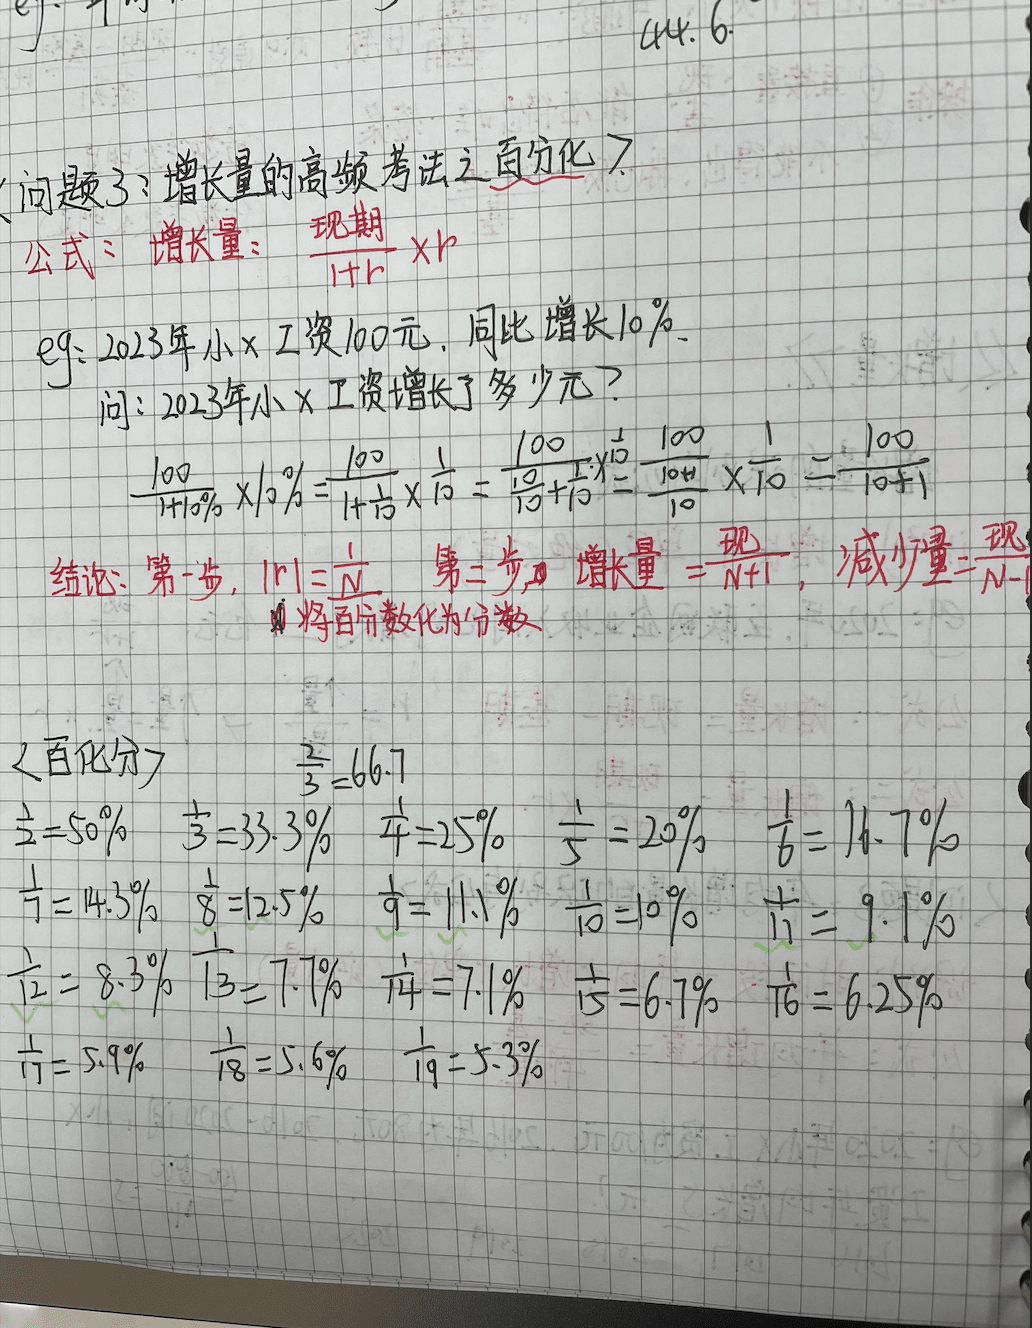 44.6.
<问题3：增长量的高频考法之百分化>
公式：增长量：现期/1+r ×r
eg：2023年小X工资100元．同比增长10%．
问：2023年小X工资增长了多少元？
100/1+10% ×10% = 100/1+1/10 × 1/10 = 100/10/10+1/10 × 1/10 = 100/10+1/10 × 1/10 = 100/10+1
结论：第一步，|r|=1/N 第二步，增长量=现/N+1，减少量=现/N-1
将百分数化为分数
<百化分> 2/3=66.7
1/2=50% 1/3=33.3% 1/4=25% 1/5=20% 1/6=16.7%
1/7=14.3% 1/8=12.5% 1/9=11.1% 1/10=10% 1/11=9.1%
1/12=8.3% 1/13=7.7% 1/14=7.1% 1/15=6.7% 1/16=6.25%
1/17=5.9% 1/18=5.6% 1/19=5.3%